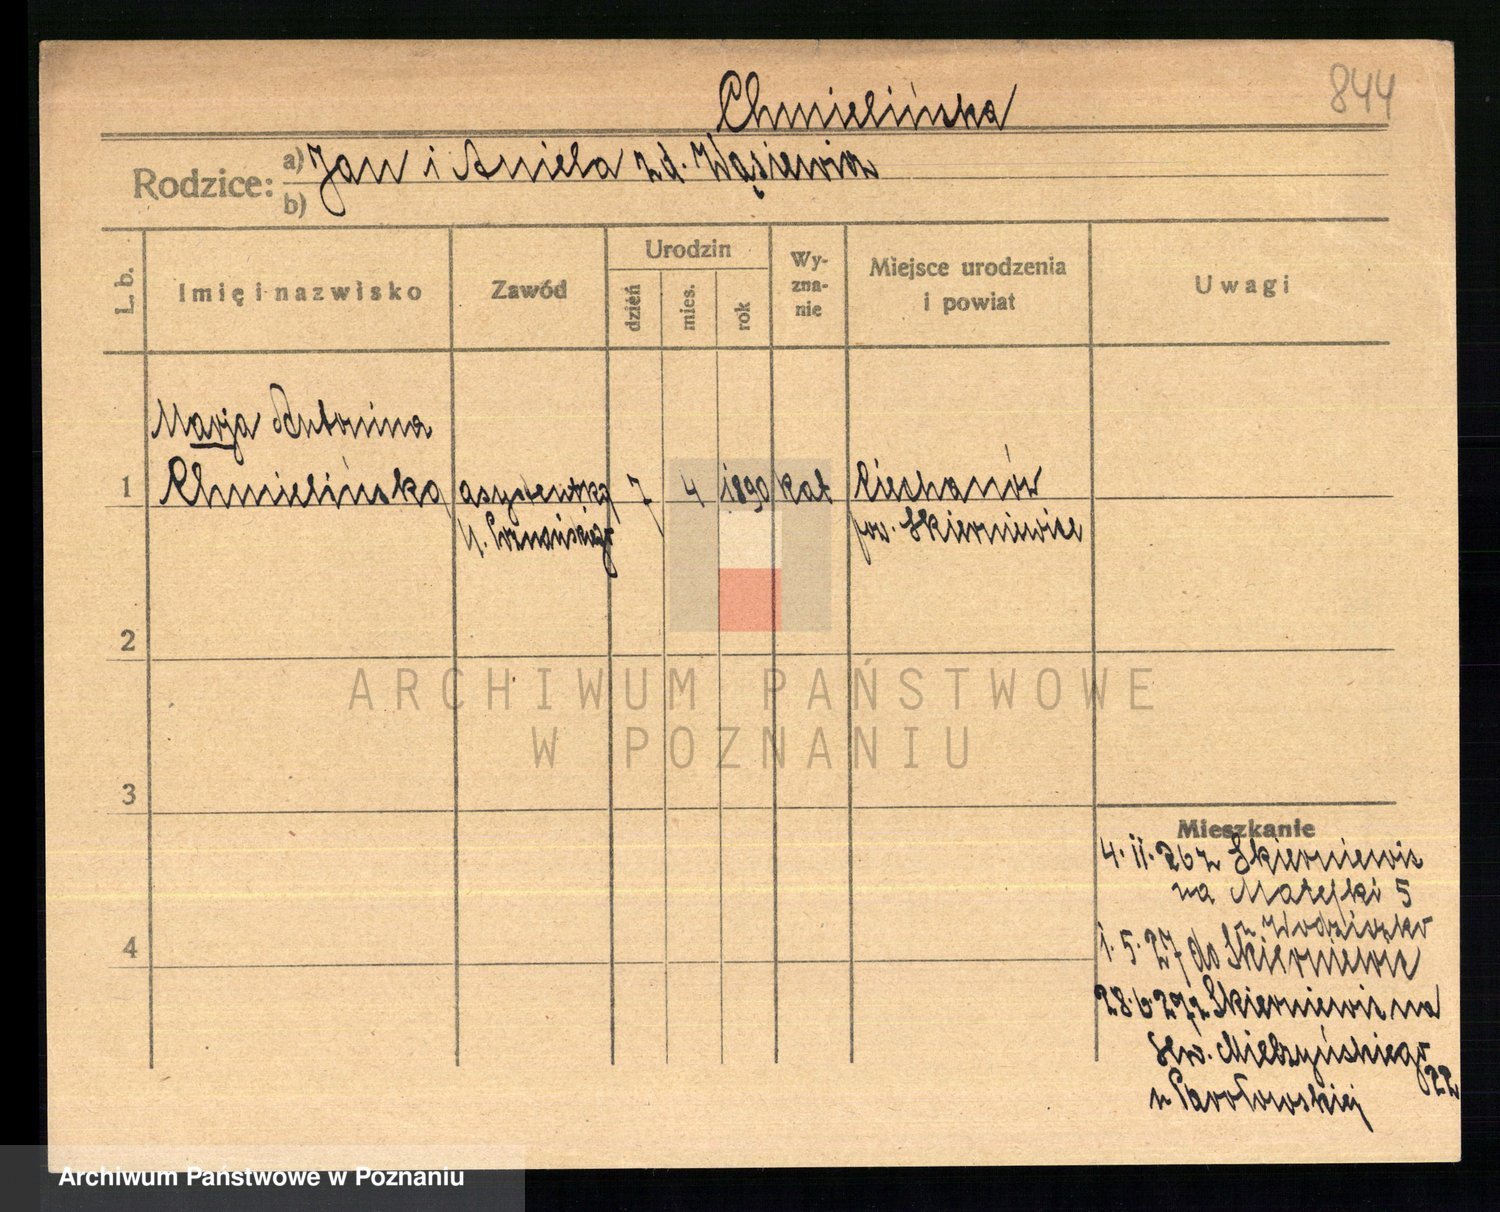 844
Chmielińska
Rodzice:
a) Jan i Aniela zd. Wąsiewicz
b)
L. b.
Imię i nazwisko
Zawód
Urodzin
dzień
mies.
rok
Wy-
zna-
nie
Miejsce urodzenia
i powiat
Uwagi
Marja Antonina
1 Chmielińska asystentka 7 4 1890 kat Ciechanów
U. Poznańskiego pow. Skierniewice
2
3
4
Mieszkanie
4.11.26 z Skierniewic
na Matejki 5
u Wodziczko
1.5.27 do Skierniewic
28.6.27 z Skierniewic na
Sew. Mielżyńskiego
22
u
ARCHIWUM PAŃSTWOWE
W POZNANIU
Archiwum Państwowe w Poznaniu